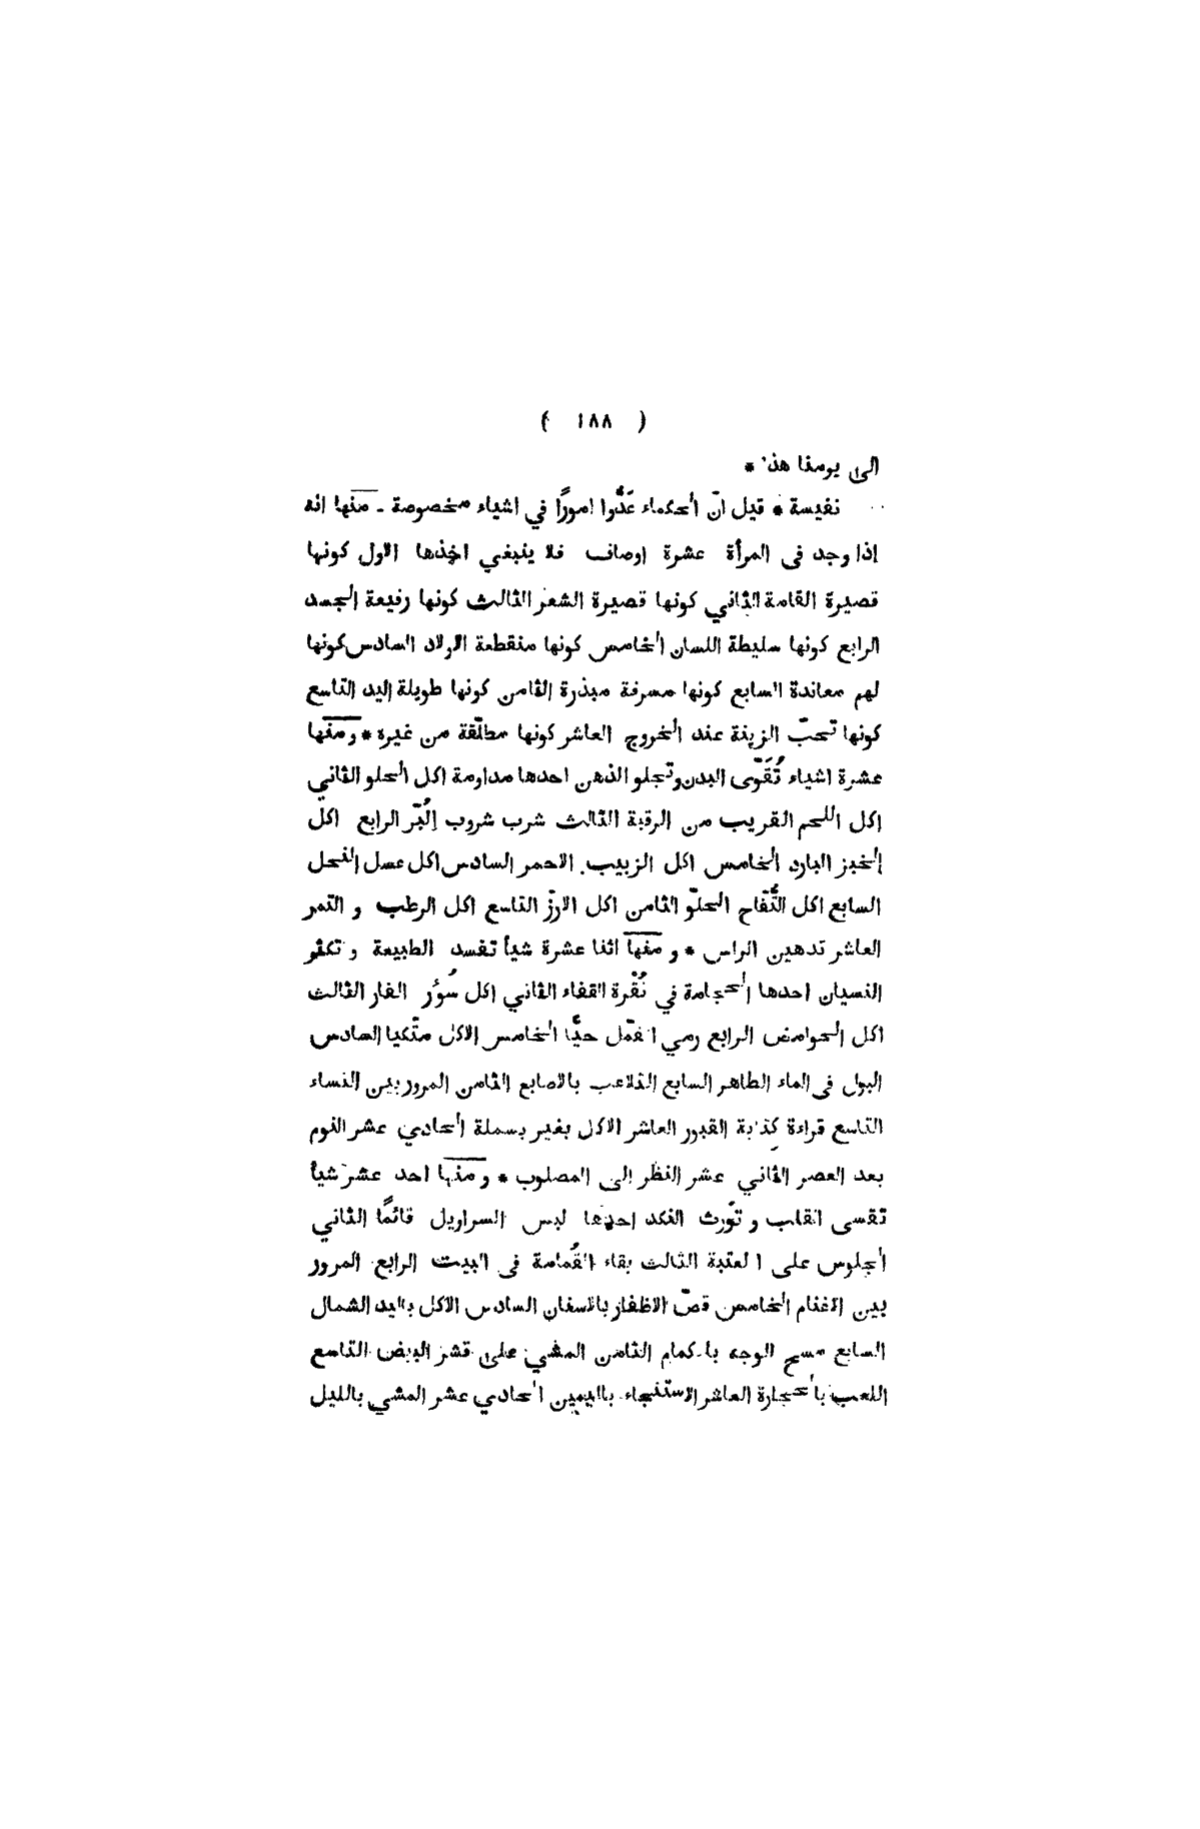 ( ١٨٨ )
الى يومنا هذا *
نفيسة * قيل انّ الحكماء عَدُّوا امورًا في اشياء مخصوصة - منها انه
إذا وجد فى المرأة عشرة اوصاف فلا ينبغي اخذها الاول كونها
قصيرة القامة الثاني كونها قصيرة الشعر الثالث كونها رفيعة الجسد
الرابع كونها سليطة اللسان الخامس كونها منقطعة الاولاد السادس كونها
لهم معاندة السابع كونها مسرفة مبذرة الثامن كونها طويلة اليد التاسع
كونها تحبّ الزينة عند الخروج العاشر كونها مطلّقة من غيره * ومنها
عشرة اشياء تُقَوّى البدن وتجلو الذهن احدها مداومة اكل الحلو الثاني
اكل اللحم القريب من الرقبة الثالث شرب شروب البُرّ الرابع اكل
الخبز البارد الخامس اكل الزبيب الاحمر السادس اكل عسل النحل
السابع اكل التُّفّاح الحلو الثامن اكل الارزّ التاسع اكل الرطب و التمر
العاشر تدهين الراس * و منها اثنا عشرة شيأ تفسد الطبيعة و تكثر
النسيان احدها الحجامة في نُقْرة القفاء الثاني اكل سُؤر الفار الثالث
اكل الحوامض الرابع رمي القمّل حيًّا الخامس الاكل متّكيا السادس
البول فى الماء الطاهر السابع التلاعب بالاصابع الثامن المرور بين النساء
التاسع قراءة كتابة القبور العاشر الاكل بغير بسملة الحادي عشر النوم
بعد العصر الثاني عشر النظر الى المصلوب * ومنها احد عشر شيأ
تقسى القلب و تورث النكد احدها لبس السراويل قائمًا الثاني
الجلوس على العتبة الثالث بقاء القُمامة فى البيت الرابع المرور
بين الاغنام الخامس قصّ الاظفار بالاسنان السادس الاكل باليد الشمال
السابع مسح الوجه بالاكمام الثامن المشي على قشر البيض التاسع
اللعب بالحجارة العاشر الاستنجاء باليمين الحادي عشر المشي بالليل